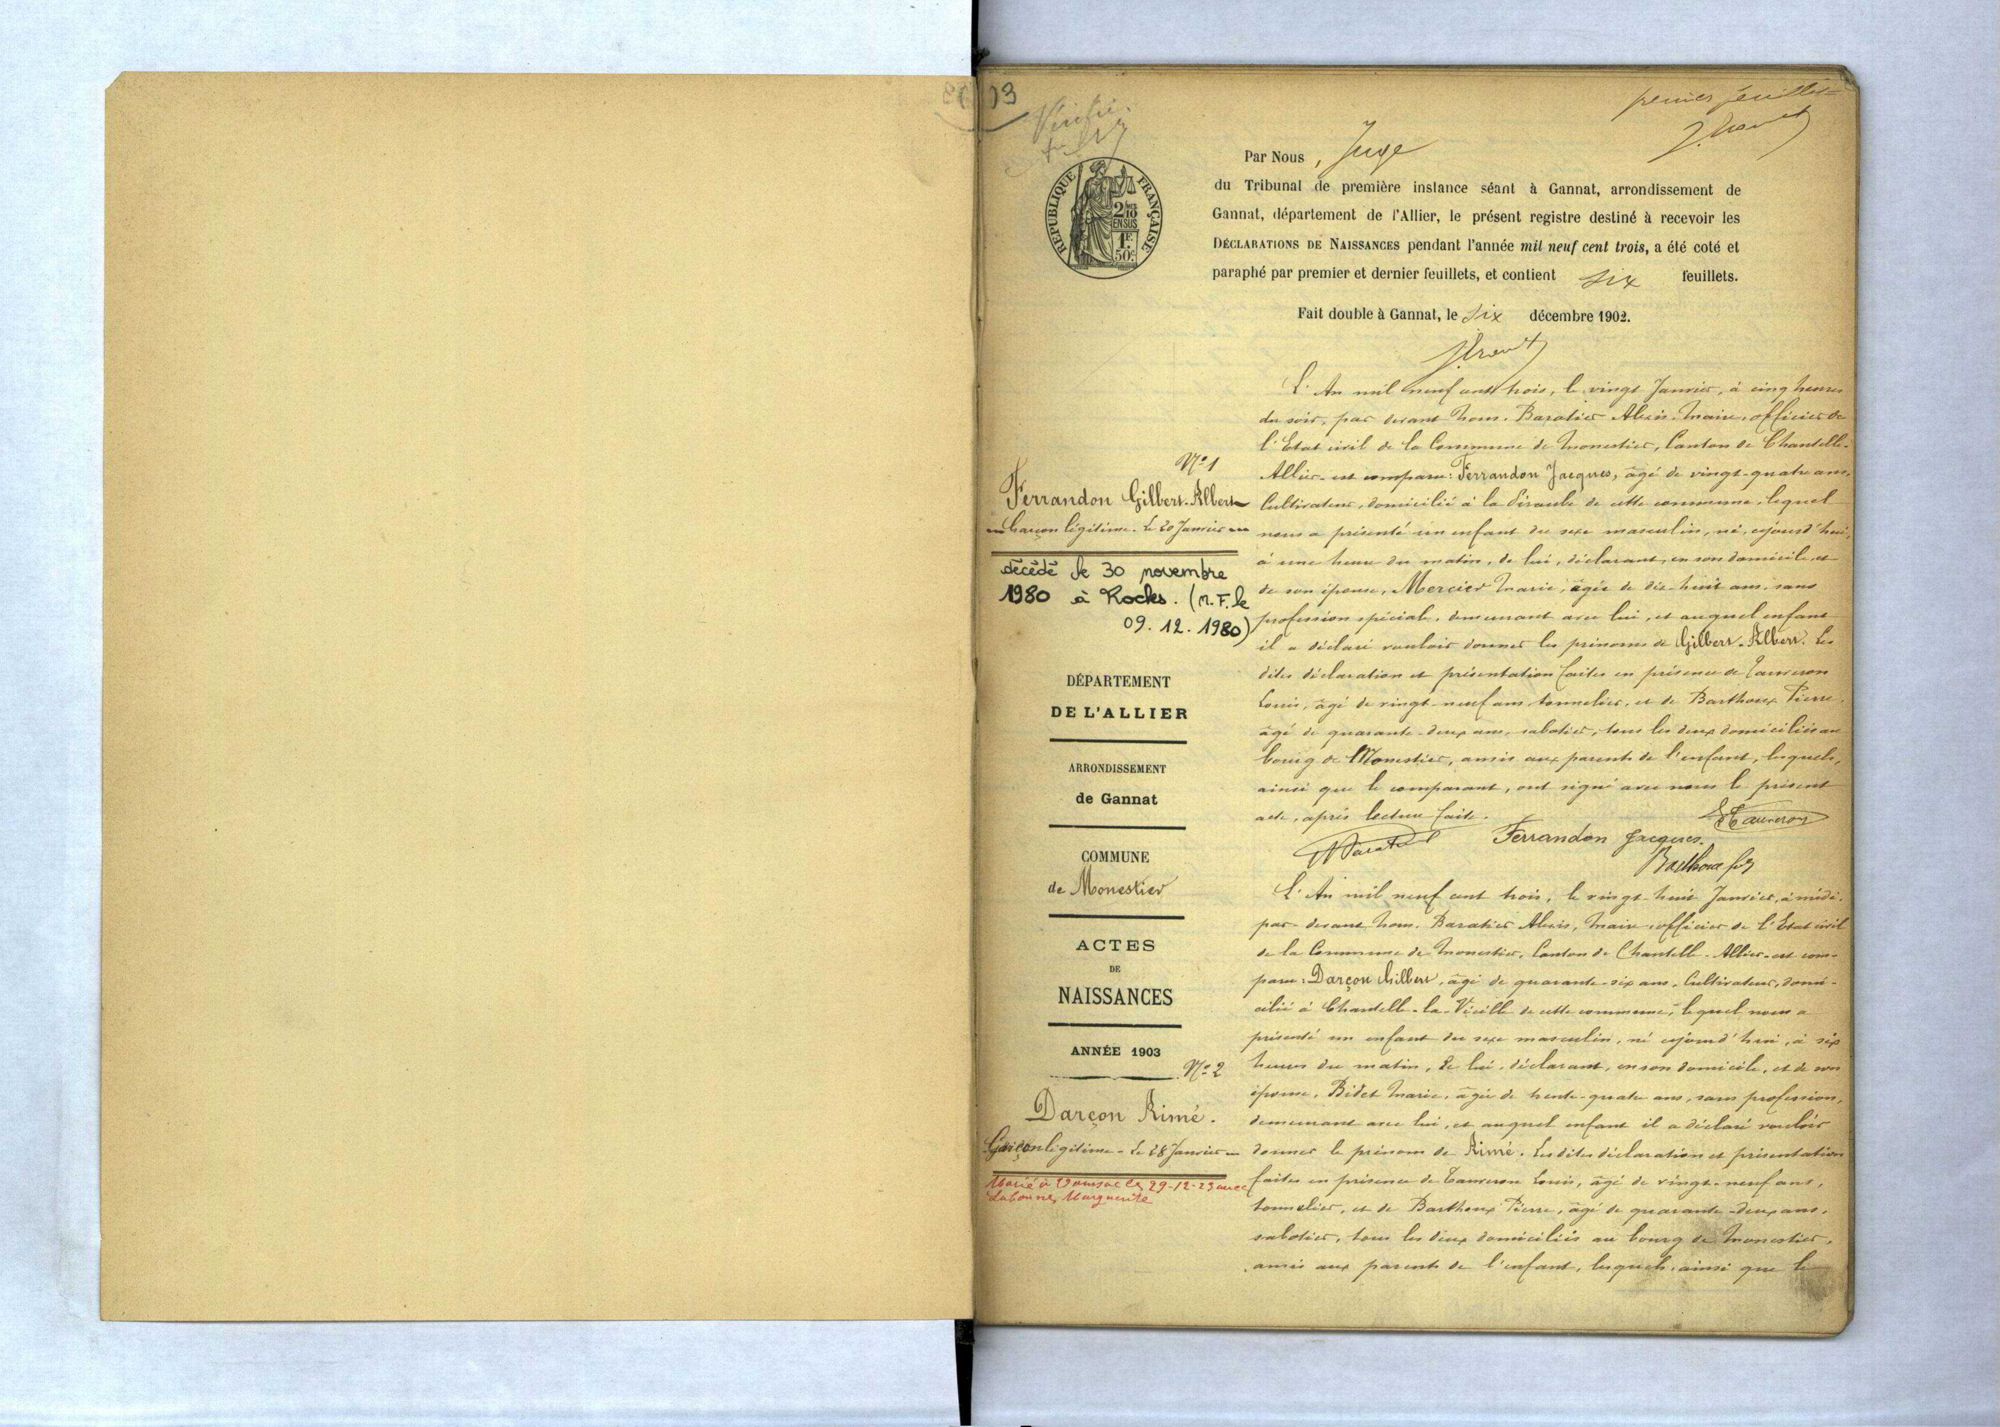 1903
Vérifié
premier feuillet
Par Nous, Juge
du Tribunal de première instance séant à Gannat, arrondissement de
Gannat, département de l'Allier, le présent registre destiné à recevoir les
DÉCLARATIONS DE NAISSANCES pendant l'année mil neuf cent trois, a été coté et
paraphé par premier et dernier feuillets, et contient six feuillets.
Fait double à Gannat, le six décembre 1902.
RÉPUBLIQUE FRANÇAISE
2/10
EN SUS
1F.
50c.
N° 1
Ferrandon Gilbert-Albert
Garçon légitime - le 20 Janvier
décédé le 30 novembre
1980 à Rocles. (M.F. le
09.12.1980)
DÉPARTEMENT
DE L'ALLIER
ARRONDISSEMENT
de Gannat
COMMUNE
de Monestier
ACTES
DE
NAISSANCES
ANNÉE 1903
N° 2
Darçon Aimé.
Garçon légitime - le 28 Janvier
Marié à le 29-12-23 avec
Labonne Marguerite
L'An mil neuf cent trois, le vingt Janvier, à cinq heures
du soir, par devant Nous, Baratier Alexis, Maire, officier de
l'Etat civil de la Commune de Monestier, Canton de Chantelle-
Allier, est comparu: Ferrandon Jacques, âgé de vingt-quatre ans,
Cultivateur, domicilié à la de cette commune, lequel
nous a présenté un enfant du sexe masculin, né, aujourd'hui,
à une heure du matin, de lui, déclarant, en son domicile, et
de son épouse, Mercier Marie, âgée de dix-huit ans, sans
profession spéciale, demeurant avec lui, et auquel enfant
il a déclaré vouloir donner les prénoms de Gilbert-Albert. Les
dites déclaration et présentation faites en présence de Tauveron
Louis, âgé de vingt-neuf ans, tonnelier, et de Barthoux Pierre,
âgé de quarante-deux ans, sabotier, tous les deux domiciliés au
bourg de Monestier, amis aux parents de l'enfant, lesquels,
ainsi que le comparant, ont signé avec nous le présent
acte, après lecture faite.
Baratier Ferrandon Jacques. L Tauveron
Barthoux
L'An mil neuf cent trois, le vingt-huit Janvier, à midi,
par devant Nous, Baratier Alexis, Maire, officier de l'Etat civil
de la Commune de Monestier, Canton de Chantelle - Allier - est com-
paru: Darçon Gilbert, âgé de quarante-six ans, Cultivateur, domi-
cilié à Chantelle-la-Vieille de cette commune, lequel nous a
présenté un enfant du sexe masculin, né aujourd'hui, à six
heures du matin, de lui, déclarant, en son domicile, et de son
épouse, Bidet Marie, âgée de trente-quatre ans, sans profession,
demeurant avec lui, et auquel enfant il a déclaré vouloir
donner le prénom de Aimé. Les dites déclaration et présentation
faites en présence de Tauveron Louis, âgé de vingt-neuf ans,
tonnelier, et de Barthoux Pierre, âgé de quarante-deux ans,
sabotier, tous les deux domiciliés au bourg de Monestier,
amis aux parents de l'enfant, lesquels, ainsi que le